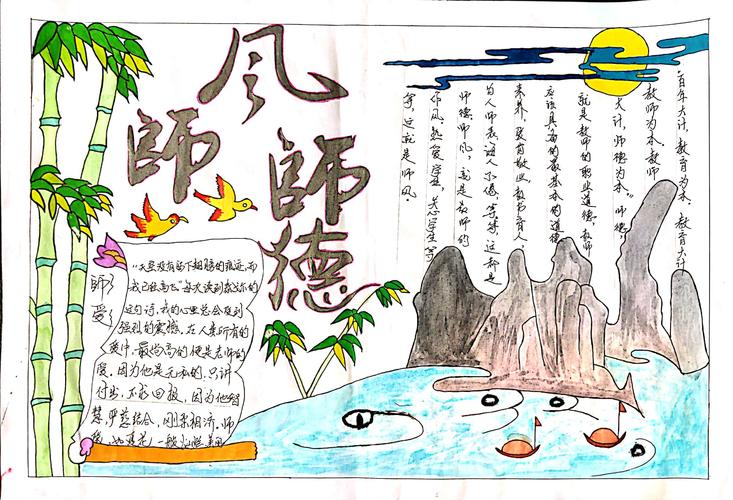 师风
師德
"百年大计，教育为本，教育大计
教师为本，教师
大计，师德为本。"师德，
就是教师的职业道德，教师
应该具备的最基本的道德
素养，爱岗敬业、教书育人
为人师表，诲人不倦，等等，这都是
师德。师风，就是教师的
作风。热爱学生，关心学生，等
等，这就是师风。
師爱
"天空没有留下翅膀的痕迹，而
我已经高飞。"每次读到泰戈尔的
这句诗，我的心里总会受到
强烈的震撼。在人类所有的
爱中，最崇高的便是老师的
爱。因为他是无私的，只讲
付出，不求回报，因为他
慧，严慈结合，刚柔相济。师
爱，如 一般灿烂